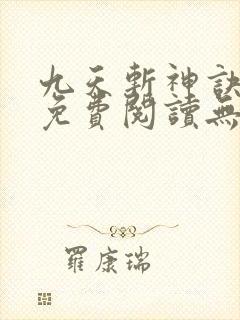 九天斬神訣
免費閱讀無
羅康瑞